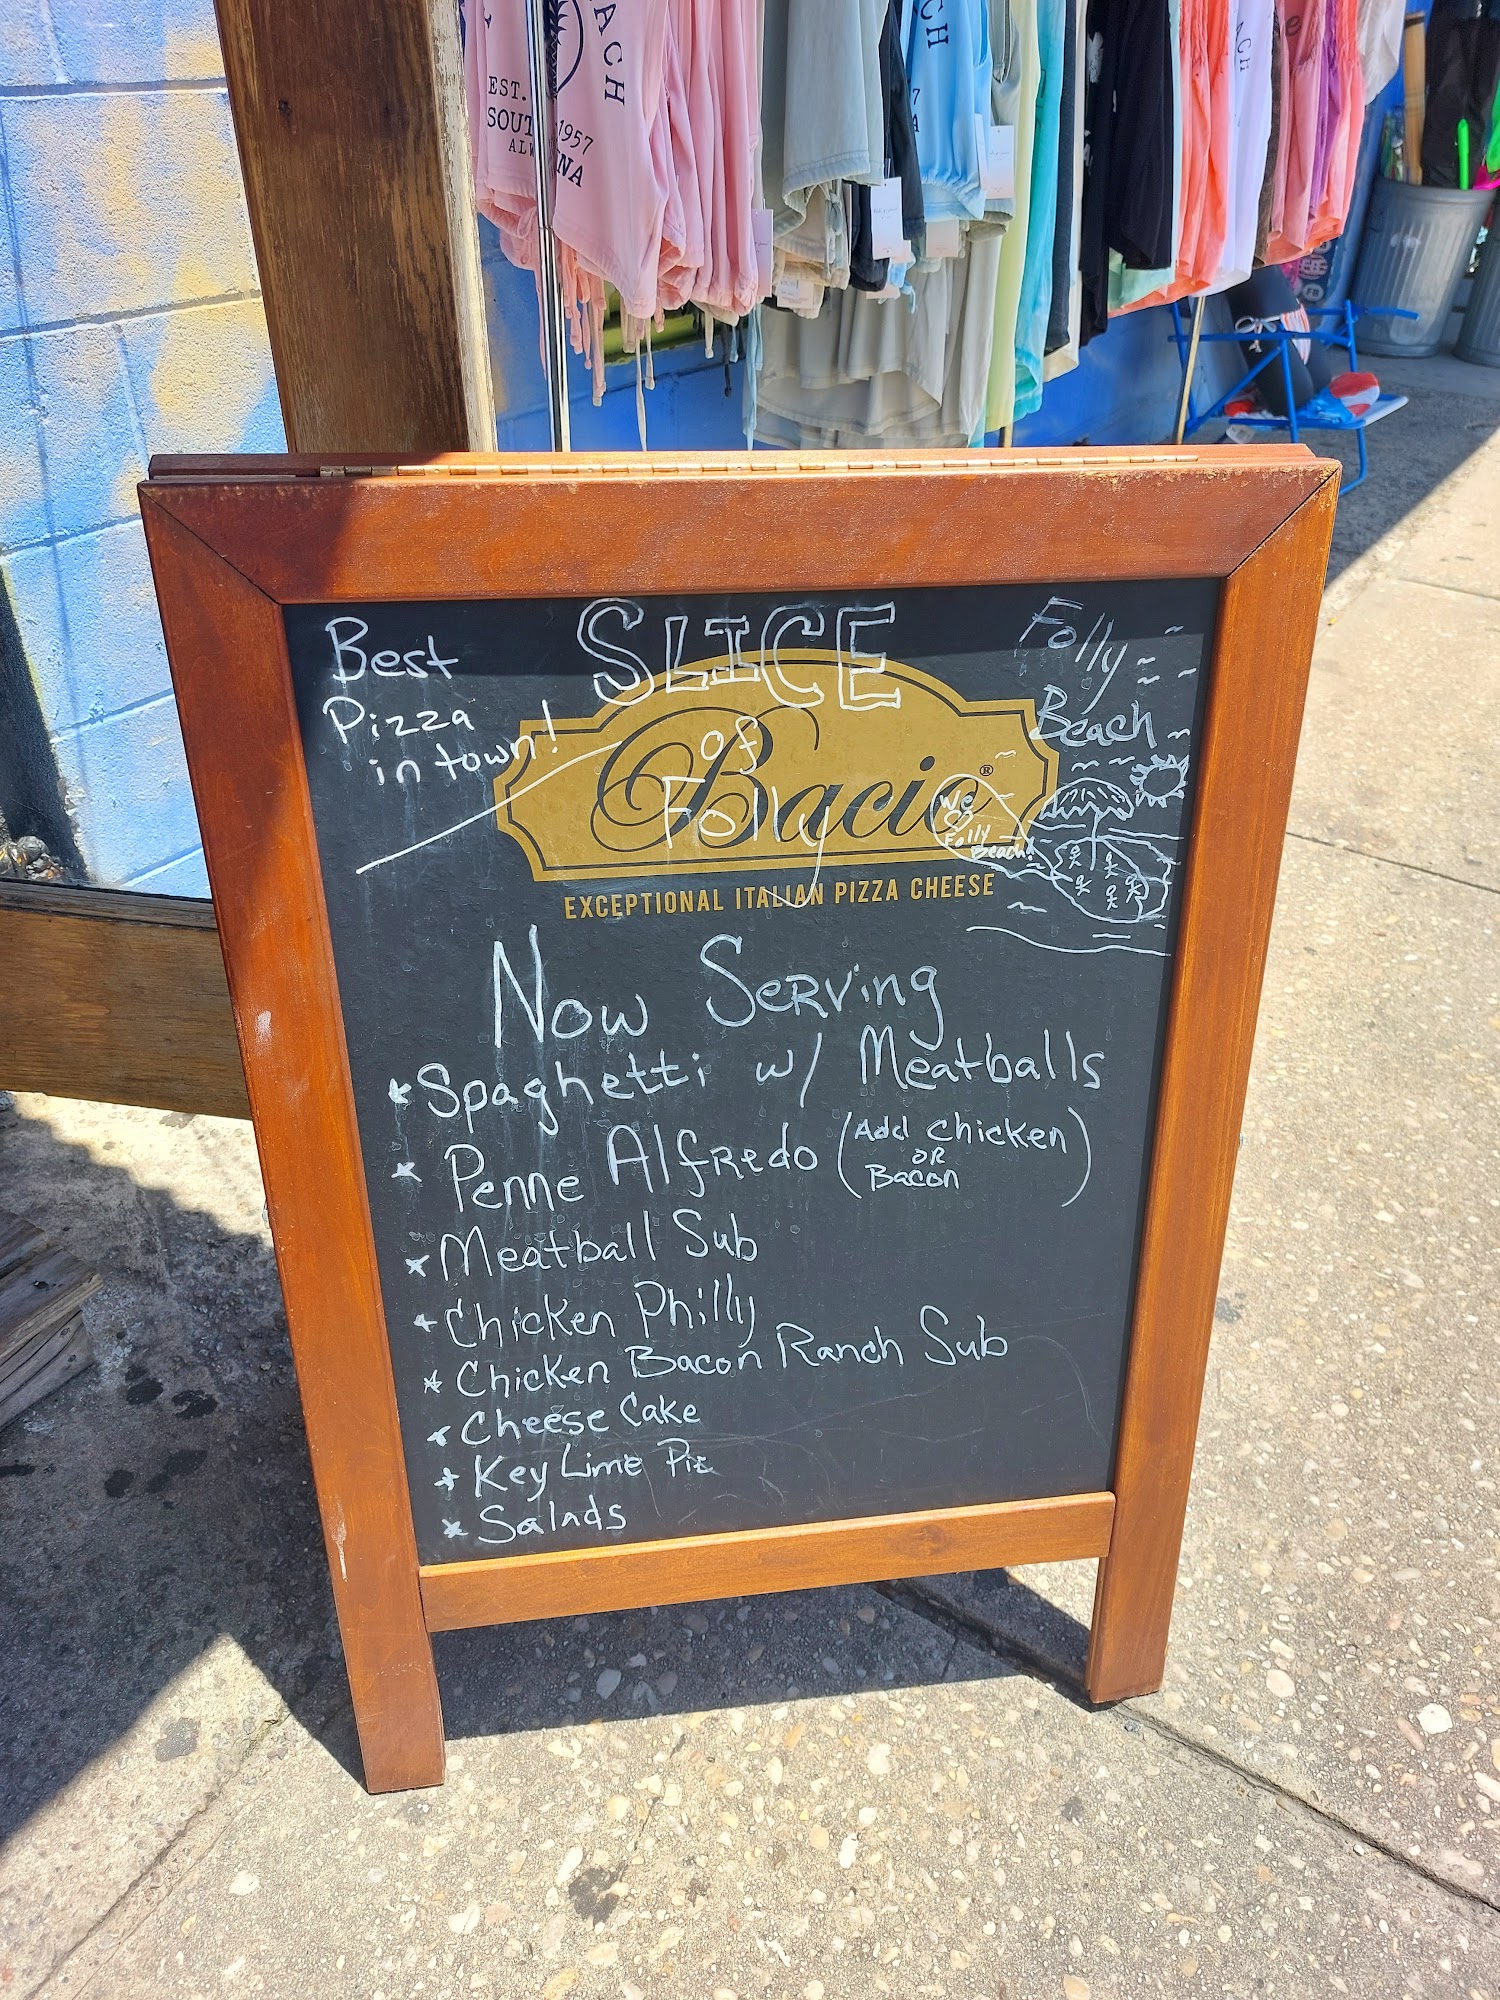 ACH
EST.
1957
SOUT
NA
CH
ACH
Best
Pizza
in town!
SLICE
of
Folly
Folly
Beach
Bacio®
We
Folly
Beach!
EXCEPTIONAL ITALIAN PIZZA CHEESE
Now Serving
* Spaghetti w/ Meatballs
* Penne Alfredo (Add chicken
OR
Bacon)
* Meatball Sub
* Chicken Philly
* Chicken Bacon Ranch Sub
* Cheese Cake
* Key Lime Pie
* Salads